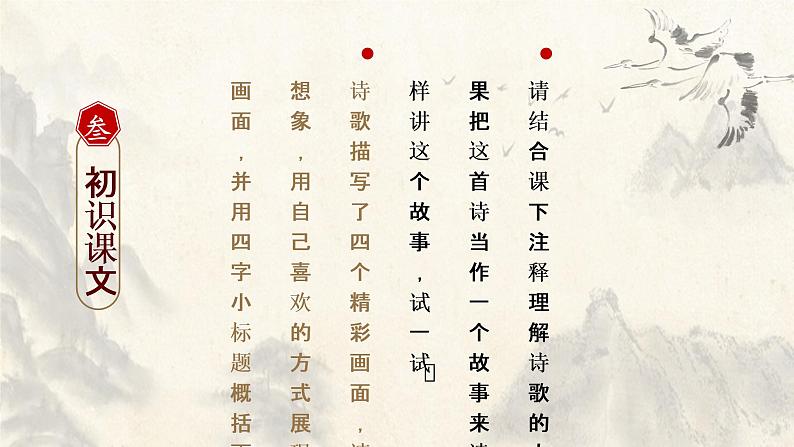 叁
初识课文
请结合课下注释理解诗歌的
果把这首诗当作一个故事来
样讲这个故事，试一试
诗歌描写了四个精彩画面，
想象，用自己喜欢的方式展
画面，并用四字小标题概括